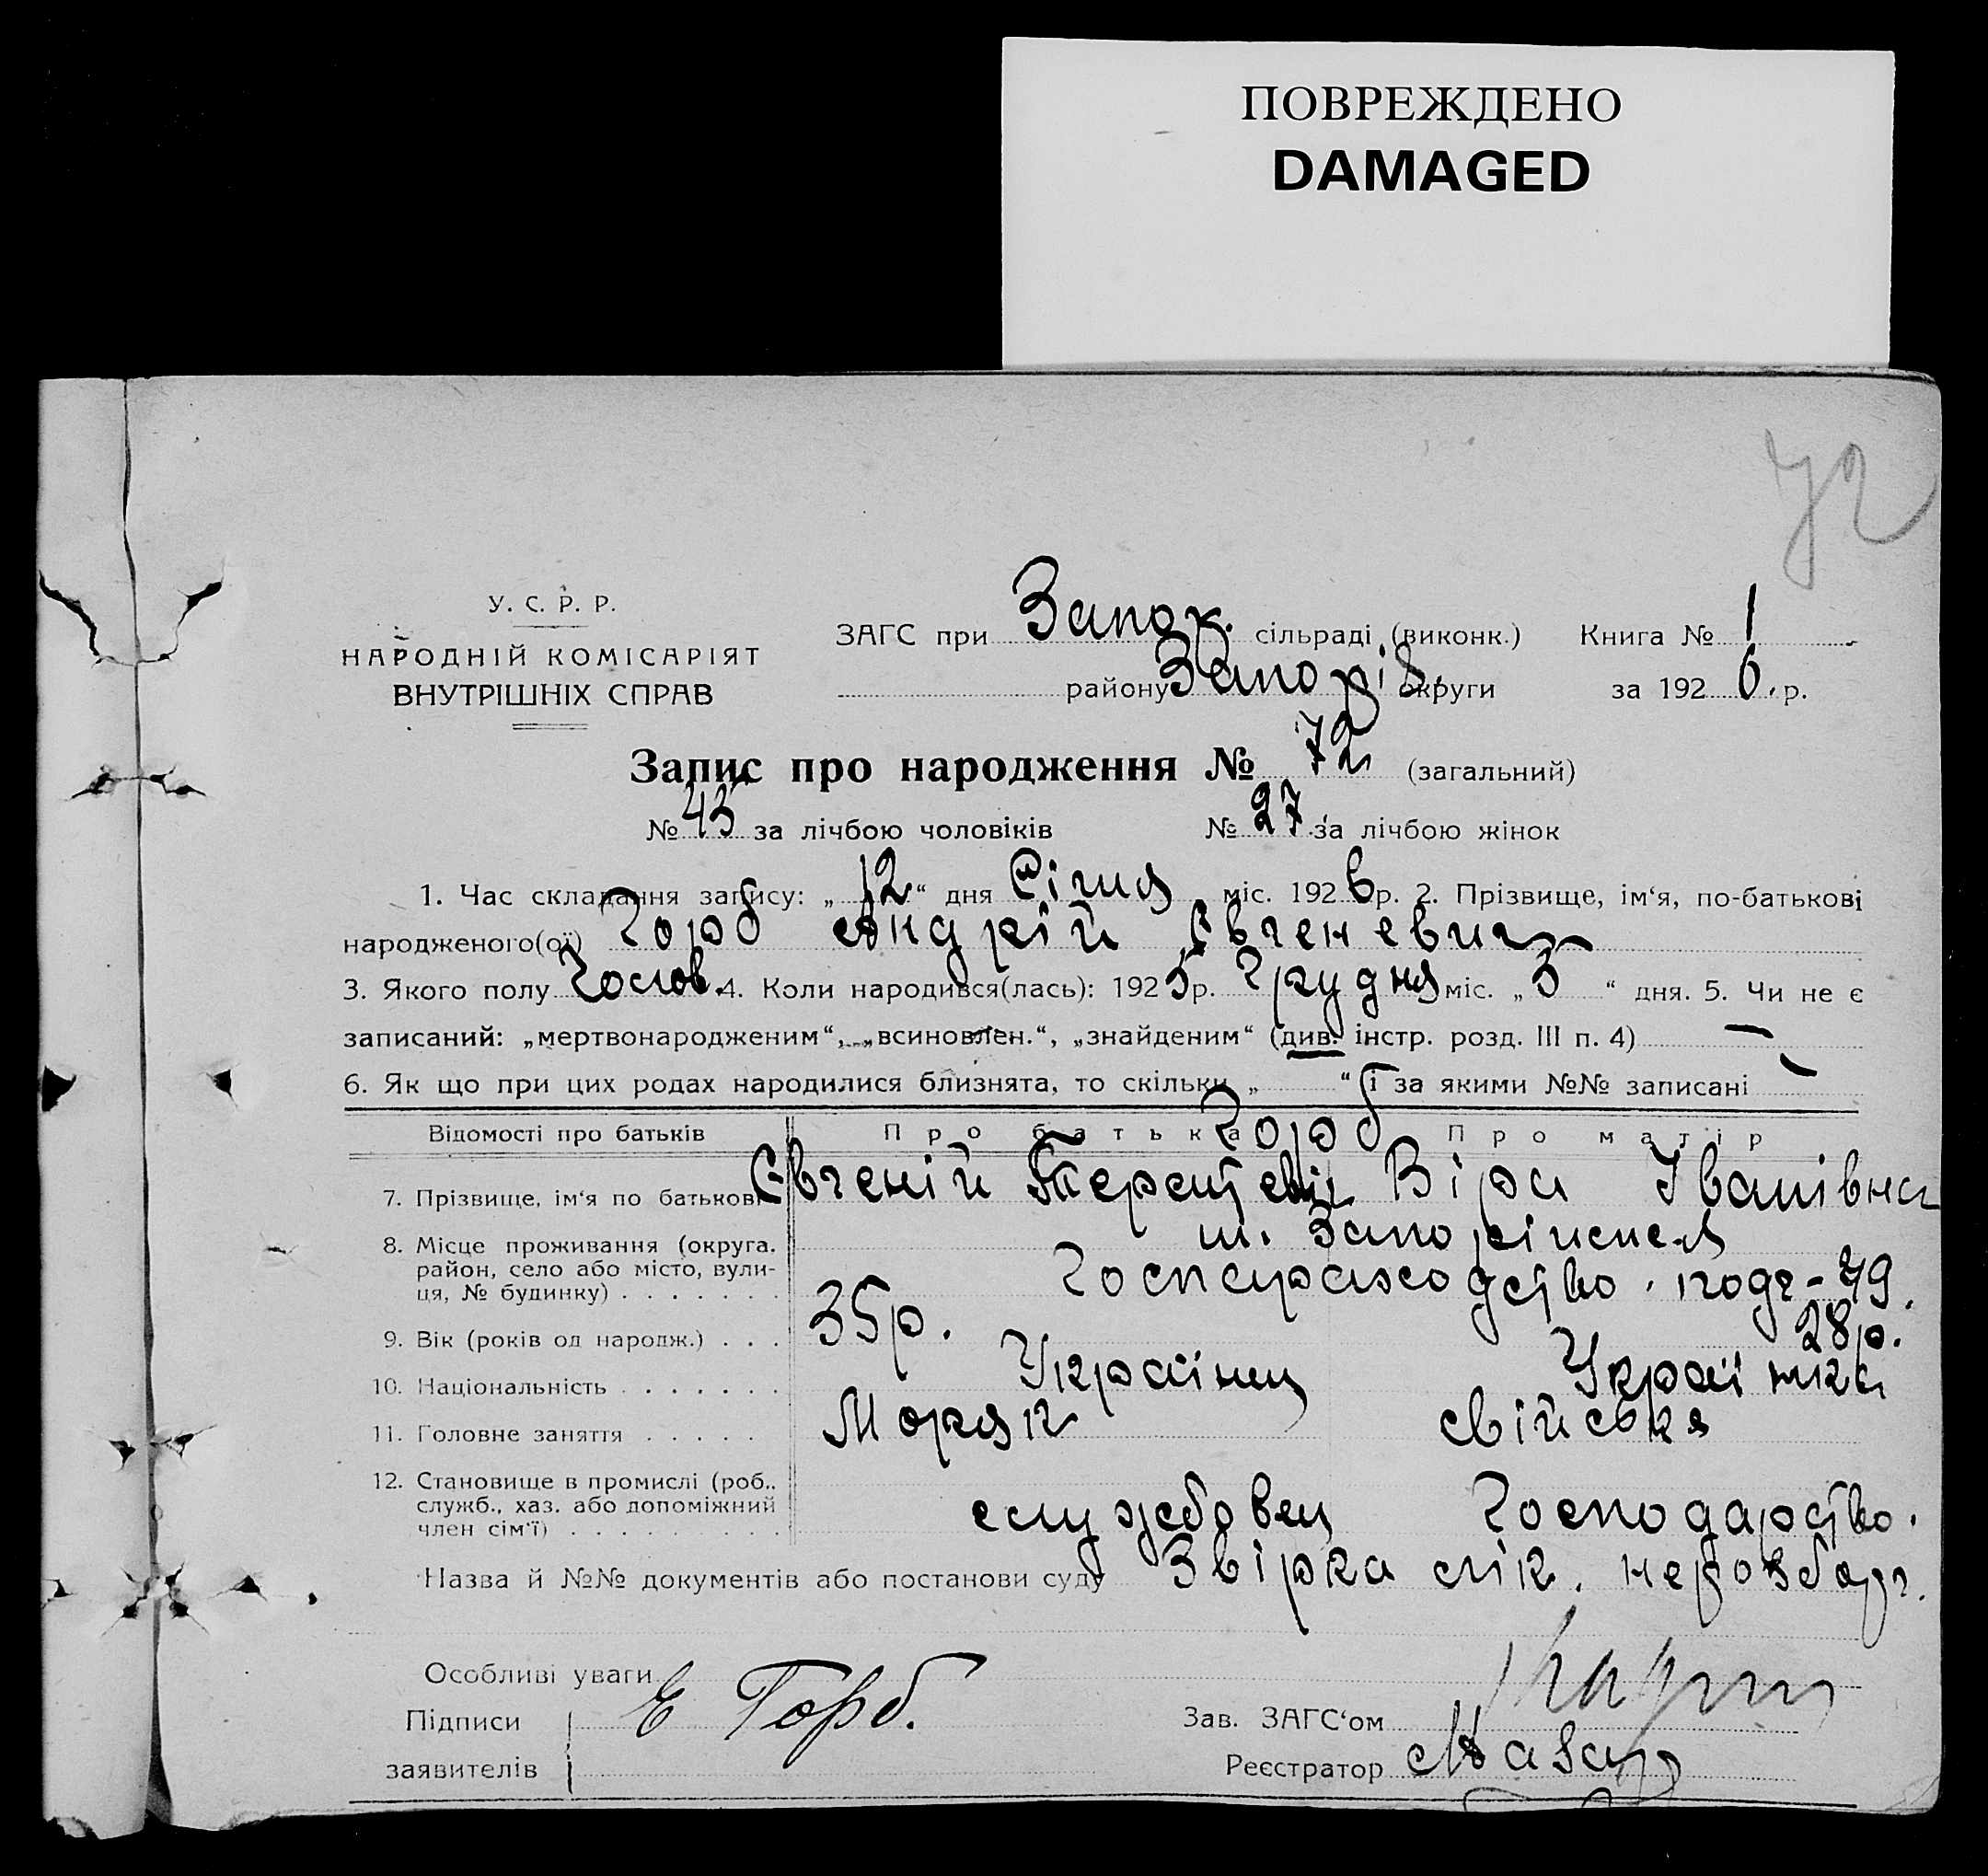 ПОВРЕЖДЕНО
DAMAGED
72
У. С. Р. Р.
НАРОДНІЙ КОМІСАРІЯТ
ВНУТРІШНІХ СПРАВ
ЗАГС при Запор. сільраді (виконк.) Книга № 1
району Запоріз. округи за 192 6. р.
Запис про народження № 72 (загальний)
№ 45 за лічбою чоловіків № 27 за лічбою жінок
1. Час складання запису: „ 12 “ дня Січня міс. 192 6 р. 2. Прізвище, ім‘я, по-батькові
народженого(ої) Горб Андрій Євгеневич
3. Якого полу Чолов. 4. Коли народився(лась): 192 5 р. Грудня міс. „ 5 “ дня. 5. Чи не є
записаний: „мертвонародженим“, „всиновлен.“, „знайденим“ (див. інстр. розд. III п. 4) —
6. Як що при цих родах народилися близнята, то скільки „ “ і за якими №№ записані —
Відомості про батьків Про батька Горб Про матір
7. Прізвище, ім‘я по батькові Євгеній Терентевіч Віра Іванівна
8. Місце проживання (округа, м. Запоріжжя
район, село або місто, вули-
ця, № будинку) . . . . . . . 79.
9. Вік (років од народж.) . . . 35р. 28р.
10. Національність . . . . . . . Українец Українка
11. Головне заняття . . . . . Моряк свійська
12. Становище в промислі (роб.,
служб., хаз. або допоміжний службовец Господарство.
член сім‘ї) . . . . . . . . .
Назва й №№ документів або постанови суду Звірка лік.
Особливі уваги
Підписи Е Горб.
Зав. ЗАГС‘ом
заявителів
Реєстратор Назар